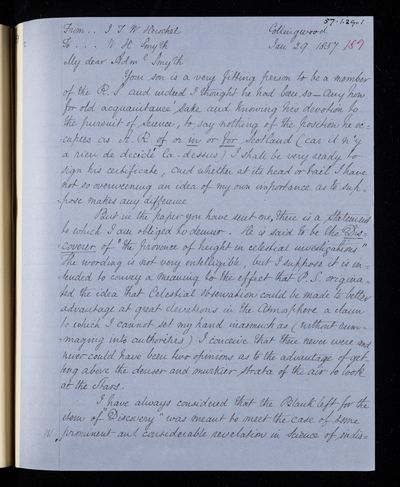 57·1·29-1
From . . J F W Herschel Collingwood
To . . . W H Smyth Jan 29 1857 189
My dear Adml Smyth
Your son is a very fitting person to be a member
of the R. S. and indeed I thought he had been so — Any how
for old acquaintance' sake and knowing his devotion to
the pursuit of Science, to say nothing of the position he oc-
cupies as A. R of or in or for Scotland (car il n'y
a rien de decidé la-dessus) I shall be very ready to
sign his certificate, and whether at its head or tail I have
not so overweening an idea of my own importance as to sup-
pose makes any difference
But in the paper you have sent me, there is a statement
to which I am obliged to demur. He is said to be the Dis-
coverer of "the province of height in celestial investigations"
The wording is not very intelligible, but I suppose it is in-
tended to convey a meaning to the effect that P. S. origina-
ted the idea that Celestial observation could be made to better
advantage at great elevations in the Atmosphere a claim
to which I cannot set my hand inasmuch as (without rum-
maging into authorities) I conceive that there never were and
never could have been two opinions as to the advantage of get-
ting above the denser and murkier strata of the air to look
at the Stars.
I have always considered that the Blank left for the
item of "Discovery" was meant to meet the case of some
prominent and considerable revelation in Science of indis=